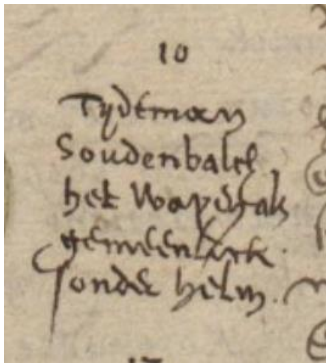 10
Tydeman
Soudenbalch
het Wapen als
gemeenlick
sonder helm.